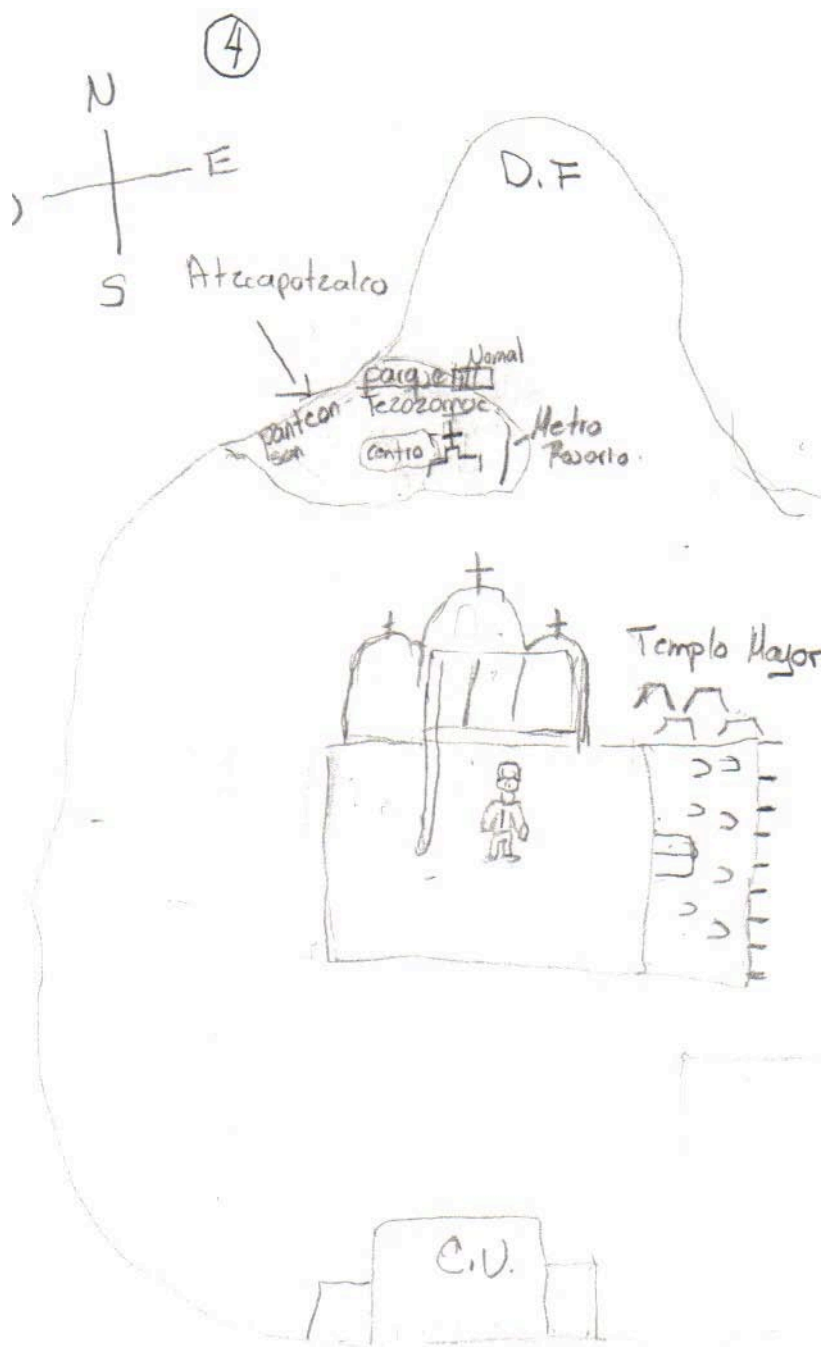 4
N
E
S
D.F
Atzcapotzalco
Nomal
parque
Tezozomoc
panteon
san
centro
Metro
Rosario.
Templo Mayor
C.U.